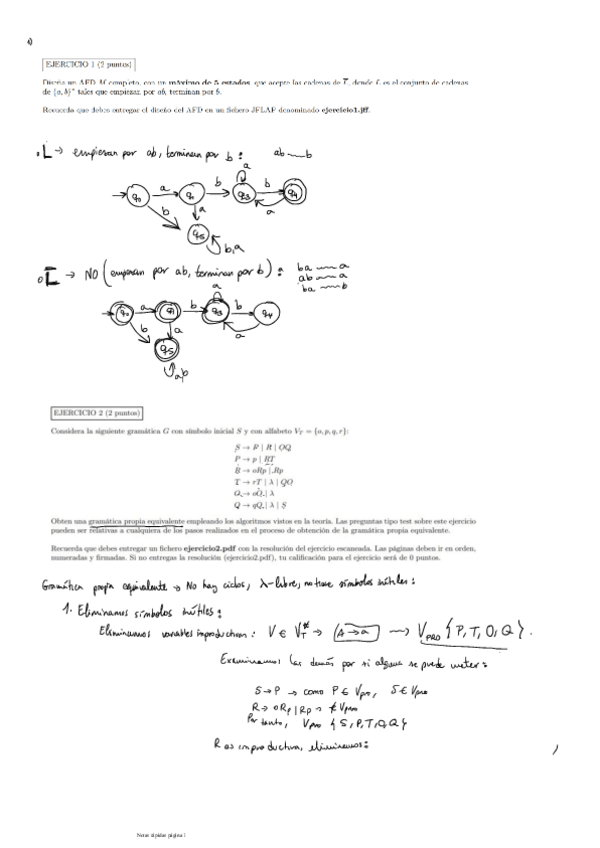 EJERCICIO 1 (2 puntos)
Diseña un AFD M completo, con un máximo de 5 estados, que acepte las cadenas de L, donde L es el conjunto de cadenas
de {a, b}* tales que empiezan por ab, terminan por b.
Recuerda que debes entregar el diseño del AFD en un fichero JFLAP denominado ejercicio1.jff.
L → empiezan por ab, terminan por b : ab b
a
a b b
q0 q1 q3 q4
b a a
q5 b,a
L → NO (empiezan por ab, terminan por b) : ba a
ab a
ba b
a
a b b
q0 q1 q3 q4
b a a
q5
a,b
EJERCICIO 2 (2 puntos)
Considera la siguiente gramática G con símbolo inicial S y con alfabeto V_T = {o, p, q, r}:
S → P | R | OQ
P → p | RT
R → oRp | Rp
T → rT | λ | QO
O → oO | λ
Q → qQ | λ | S
Obten una gramática propia equivalente empleando los algoritmos vistos en la teoría. Las preguntas tipo test sobre este ejercicio
pueden ser relativas a cualquiera de los pasos realizados en el proceso de obtención de la gramática propia equivalente.
Recuerda que debes entregar un fichero ejercicio2.pdf con la resolución del ejercicio escaneada. Las páginas deben ir en orden,
numeradas y firmadas. Si no entregas la resolución (ejercicio2.pdf), tu calificación para el ejercicio será de 0 puntos.
Gramática propia equivalente → No hay ciclos, λ-libre, no tiene símbolos inútiles :
1. Eliminamos símbolos inútiles :
Eliminamos variables improductivas : V ∈ V_T* → (A → a) → V_PRO {P, T, O, Q}.
Examinamos las demás por si alguna se puede meter :
S → P → como P ∈ Vpro, S ∈ Vpro
R → oRp | Rp → ∉ Vpro
Por tanto, Vpro {S, P, T, O, Q}
R es improductiva, eliminamos :
Notas rápidas página 1